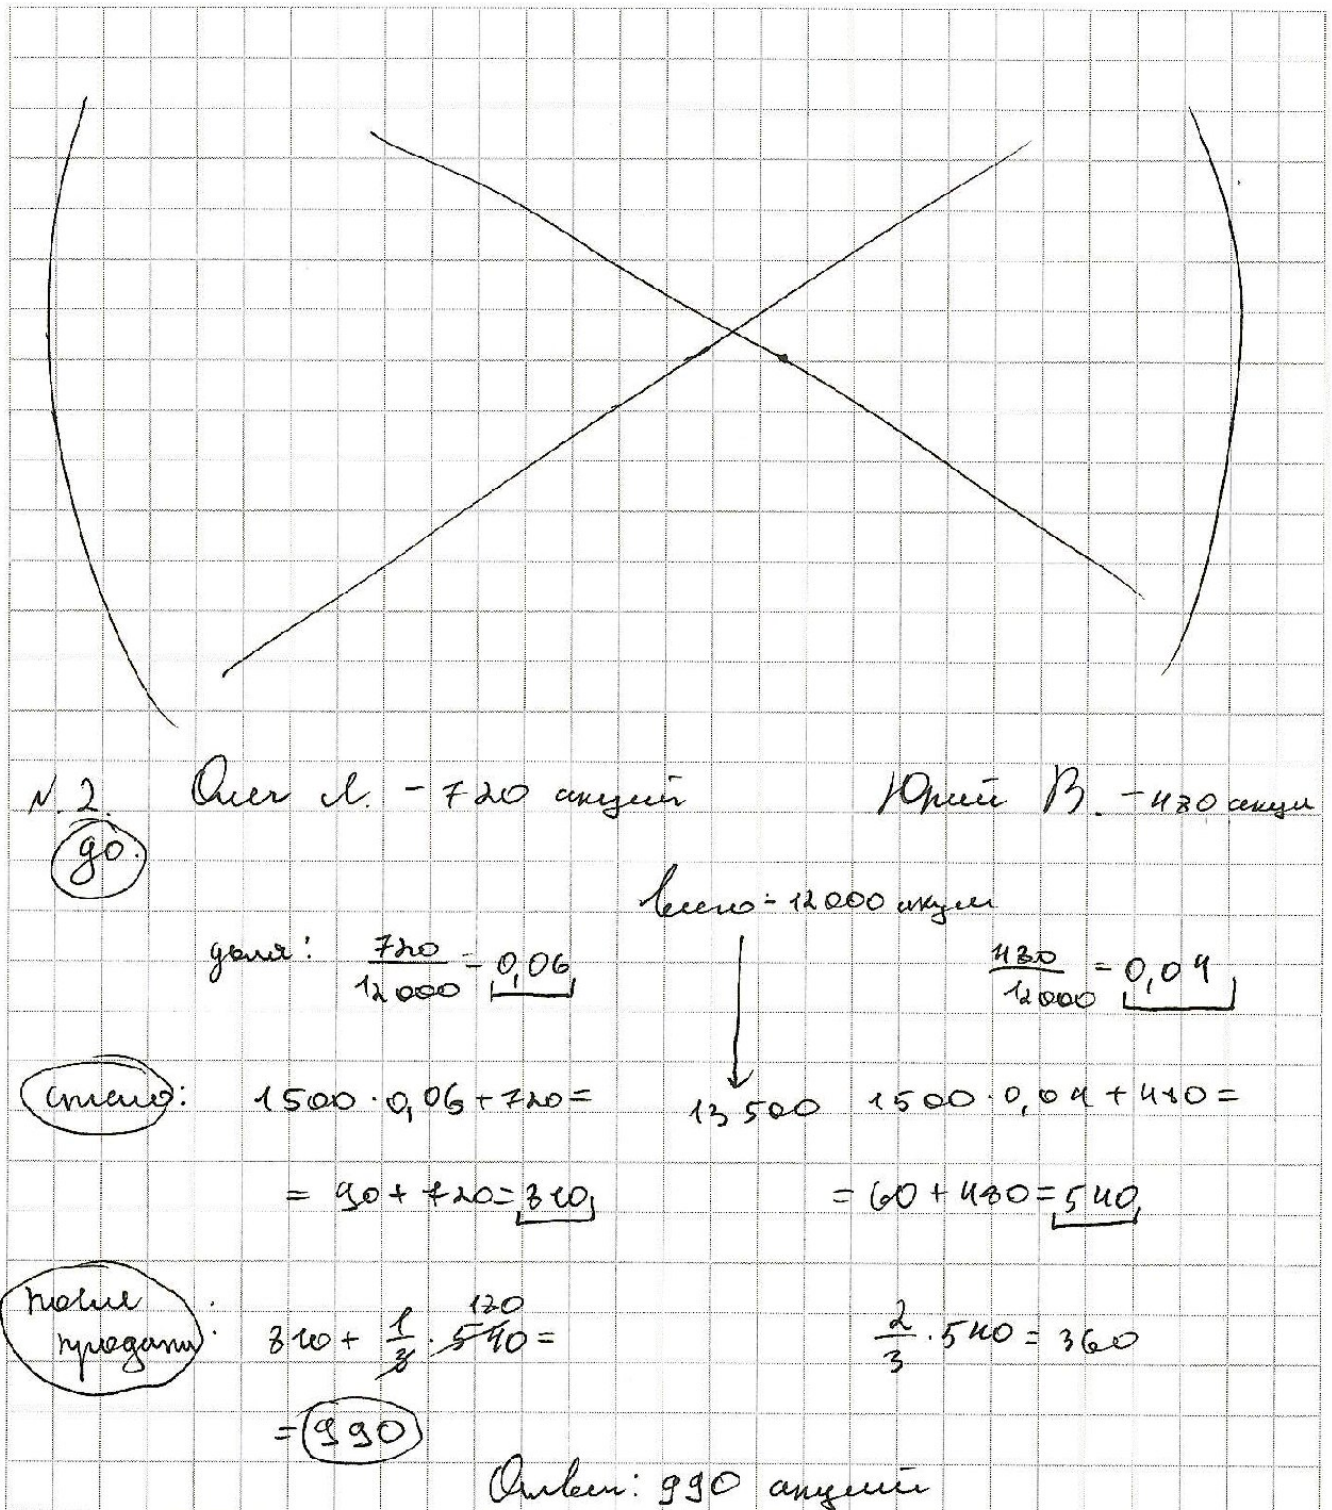 N.2. Олег Л. - 720 акций Юрий В. - 480 акци
до.
всего = 12000 акций
доля: 720/12000 = 0,06 480/12000 = 0,04
стало: 1500·0,06+720= 13500 1500·0,04+480=
= 90+720=810 = 60+480=540
после
продажи: 810 + 1/3 · 540 = 180 2/3 · 540 = 360
= 990
Ответ: 990 акций